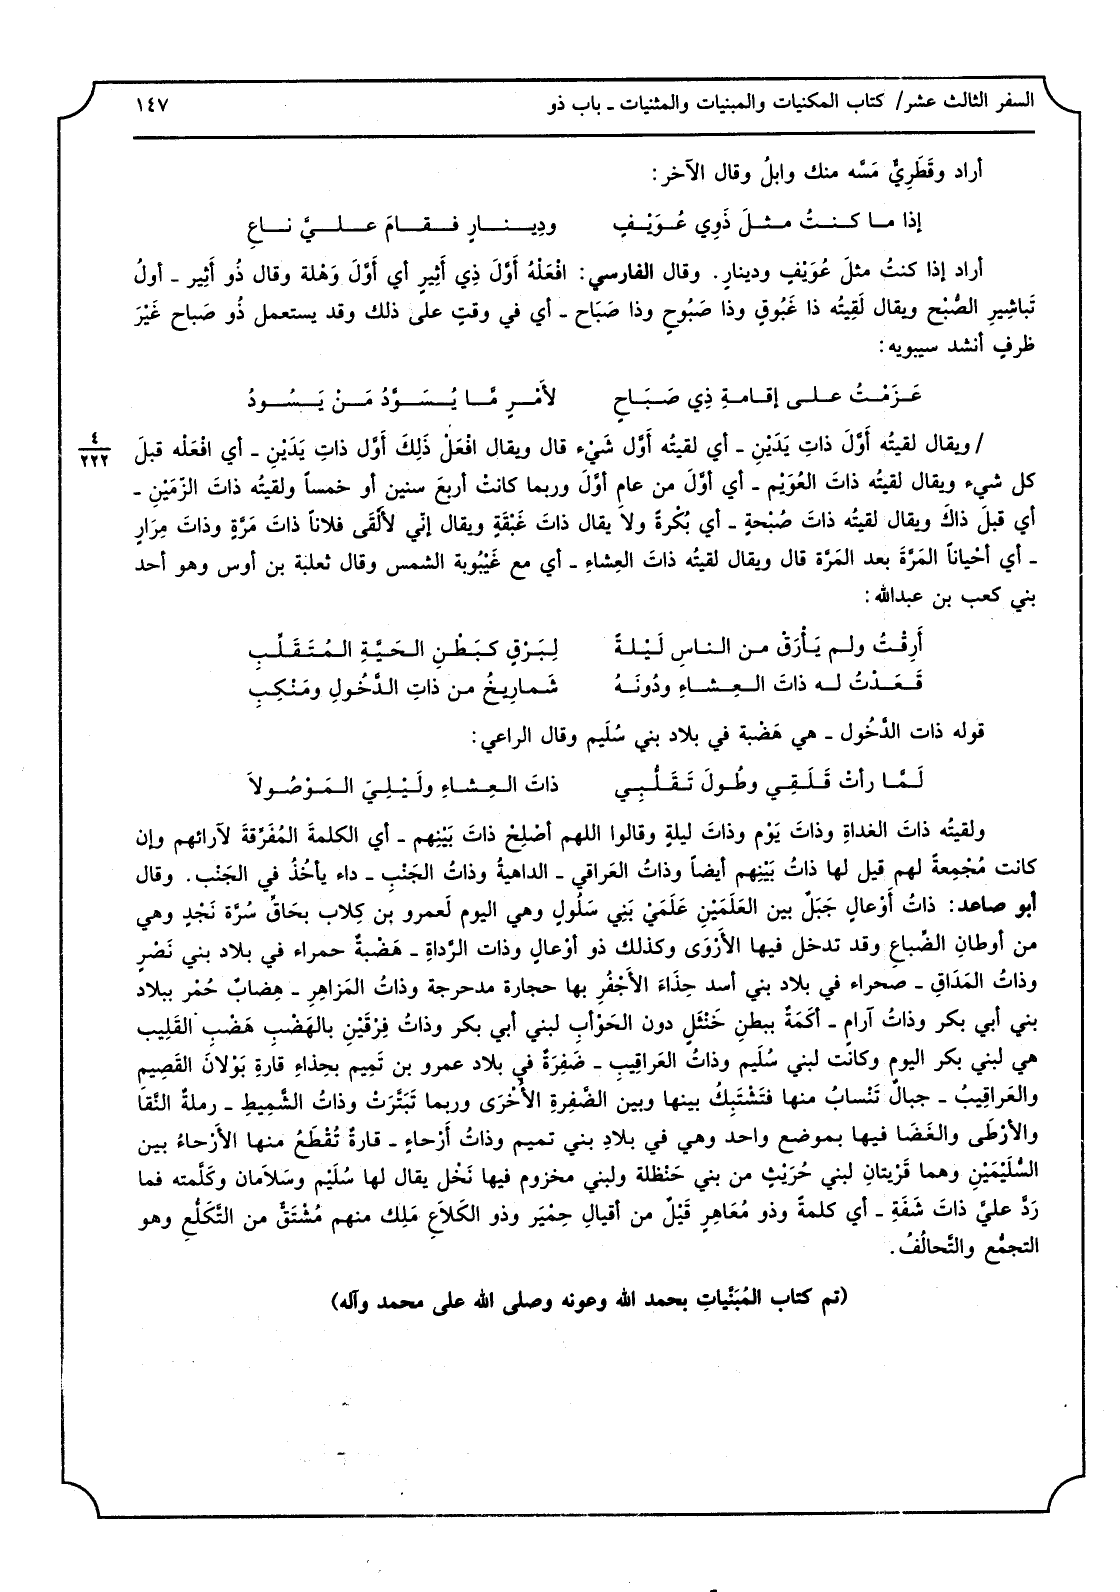 السفر الثالث عشر/ كتاب المكنيات والمبنيات والمثنيات ـ باب ذو ١٤٧
أراد وقَطَرِيٌّ مَسَّه منك وابلُ وقال الآخر:
إذا مـا كـنـتُ مـثـلَ ذَوِي عُـوَيْـفٍ ودِيـنـارٍ فـقـامَ عـلـيَّ نـاعِ
أراد إذا كنتُ مثلَ عُوَيْفٍ ودينارٍ. وقال الفارسي: افْعَلْهُ أوَّلَ ذِي أَثِيرٍ أي أوَّلَ وَهْلة وقال ذُو أَثِير ـ أولُ
تَباشِيرِ الصُّبْح ويقال لَقِيتُه ذا غَبُوقٍ وذا صَبُوحٍ وذا صَبَاح ـ أي في وقتٍ على ذلك وقد يستعمل ذُو صَباح غَيْرَ
ظرفٍ أنشد سيبويه:
عَـزَمْـتُ عـلـى إقـامـةِ ذِي صَـبَـاحٍ لأَمْـرٍ مَّـا يُـسَـوَّدُ مَـنْ يَـسُـودُ
/ ويقال لقيتُه أوَّلَ ذاتِ يَدَيْنِ ـ أي لقيتُه أوَّل شَيْء قال ويقال افْعَلْ ذَلِكَ أوَّل ذاتِ يَدَيْنِ ـ أي افْعَلْه قبلَ
٤
٢٢٢
كل شيء ويقال لقيتُه ذاتَ العُوَيْم ـ أي أوَّلَ من عامِ أوَّلَ وربما كانتْ أربعَ سنين أو خمساً ولقيتُه ذاتَ الزّمَيْنِ ـ
أي قبلَ ذاكَ ويقال لقيتُه ذاتَ صُبْحةٍ ـ أي بُكْرةً ولا يقال ذاتَ غَبْقَةٍ ويقال إنّي لأَلْقَى فلاناً ذاتَ مَرَّةٍ وذاتَ مِرَارٍ
ـ أي أحْياناً المَرَّةَ بعد المَرَّة قال ويقال لقيتُه ذاتَ العِشاءِ ـ أي مع غَيْبُوبة الشمس وقال ثعلبة بن أوس وهو أحد
بني كعب بن عبدالله:
أَرِقْـتُ ولـم يَـأْرَقْ مـن الـناسِ لَـيْـلـةً لِـبَـرْقٍ كـبَـطْـنِ الـحَـيَّـةِ الـمُـتَـقَـلِّـبِ
قَـعَـدْتُ لـه ذاتَ الـعِـشـاءِ ودُونَـهُ شَـمـارِيـخُ مـن ذاتِ الـدَّخُـولِ ومَـنْـكِـبِ
قوله ذات الدَّخُول ـ هي هَضْبة في بلاد بني سُلَيم وقال الراعي:
لَـمَّـا رأتْ قَـلَـقِـي وطُـولَ تَـقَـلُّـبِـي ذاتَ الـعِـشـاءِ ولَـيْـلِـيَ الـمَـوْصُـولاَ
ولقيتُه ذاتَ الغداةِ وذاتَ يَوْم وذاتَ ليلةٍ وقالوا اللهم أصْلِحْ ذاتَ بَيْنِهم ـ أي الكلمةَ المُفَرِّقةَ لآرائهم وإن
كانت مُجْمِعةً لهم قيل لها ذاتُ بَيْنِهم أيضاً وذاتُ العَراقي ـ الداهيةُ وذاتُ الجَنْبِ ـ داء يأخُذُ في الجَنْب. وقال
أبو صاعد: ذاتُ أوْعالٍ جَبَلٌ بين العَلَمَيْنِ عَلَمَيْ بَنِي سَلُولٍ وهي اليوم لَعمرو بن كِلاب بحَاقِّ سُرَّة نَجْدٍ وهي
من أوطانِ الضِّباعِ وقد تدخل فيها الأرْوَى وكذلك ذو أوْعالٍ وذات الرَّداةِ ـ هَضْبةٌ حمراء في بلاد بني نَصْرٍ
وذاتُ المَدَاقِ ـ صحراء في بلاد بني أسد حِذَاءَ الأَجْفُرِ بها حجارة مدحرجة وذاتُ المَزاهِرِ ـ هِضابٌ حُمْر ببلاد
بني أبي بكر وذاتُ آرامٍ ـ أكَمَةٌ ببطنِ خَنْثَلٍ دون الحَوْأبِ لبني أبي بكر وذاتُ فِرْقَيْنِ بالهَضْبِ هَضْبِ القَلِيب
هي لبني بكر اليوم وكانت لبني سُلَيم وذاتُ العَراقِيبِ ـ ضَفِرَةٌ في بلاد عمرو بن تَمِيم بحِذاءِ قارةِ بَوْلانَ القَصِيم
والعَراقِيبُ ـ جبالٌ تَنْسابُ منها فتَشْتَبِكُ بينها وبين الضَّفِرةِ الأُخْرَى وربما تَبَتَّرَتْ وذاتُ الشَّمِيطِ ـ رملةُ النَّقا
والأرْطَى والغَضَا فيها بموضع واحد وهي في بلادِ بني تميم وذاتُ أرْحاءٍ ـ قارةٌ تُقْطَعُ منها الأرْحاءُ بين
السُّلَيْمَيْنِ وهما قَرْيتانِ لبني حُرَيْثٍ من بني حَنْظلة ولبني مخزوم فيها نَخْل يقال لها سُلَيْم وسَلاَمان وكَلَّمته فما
رَدَّ عليَّ ذاتَ شَفَةٍ ـ أي كلمةً وذو مُعَاهِرٍ قَيْلٌ من أقيالِ حِمْيَر وذو الكَلاَعِ مَلِك منهم مُشْتَقٌّ من التَّكَلُّع وهو
التجمُّع والتَّحالُفُ.
(تم كتاب المُبَنَّياتِ بحمد الله وعونه وصلى الله على محمد وآله)